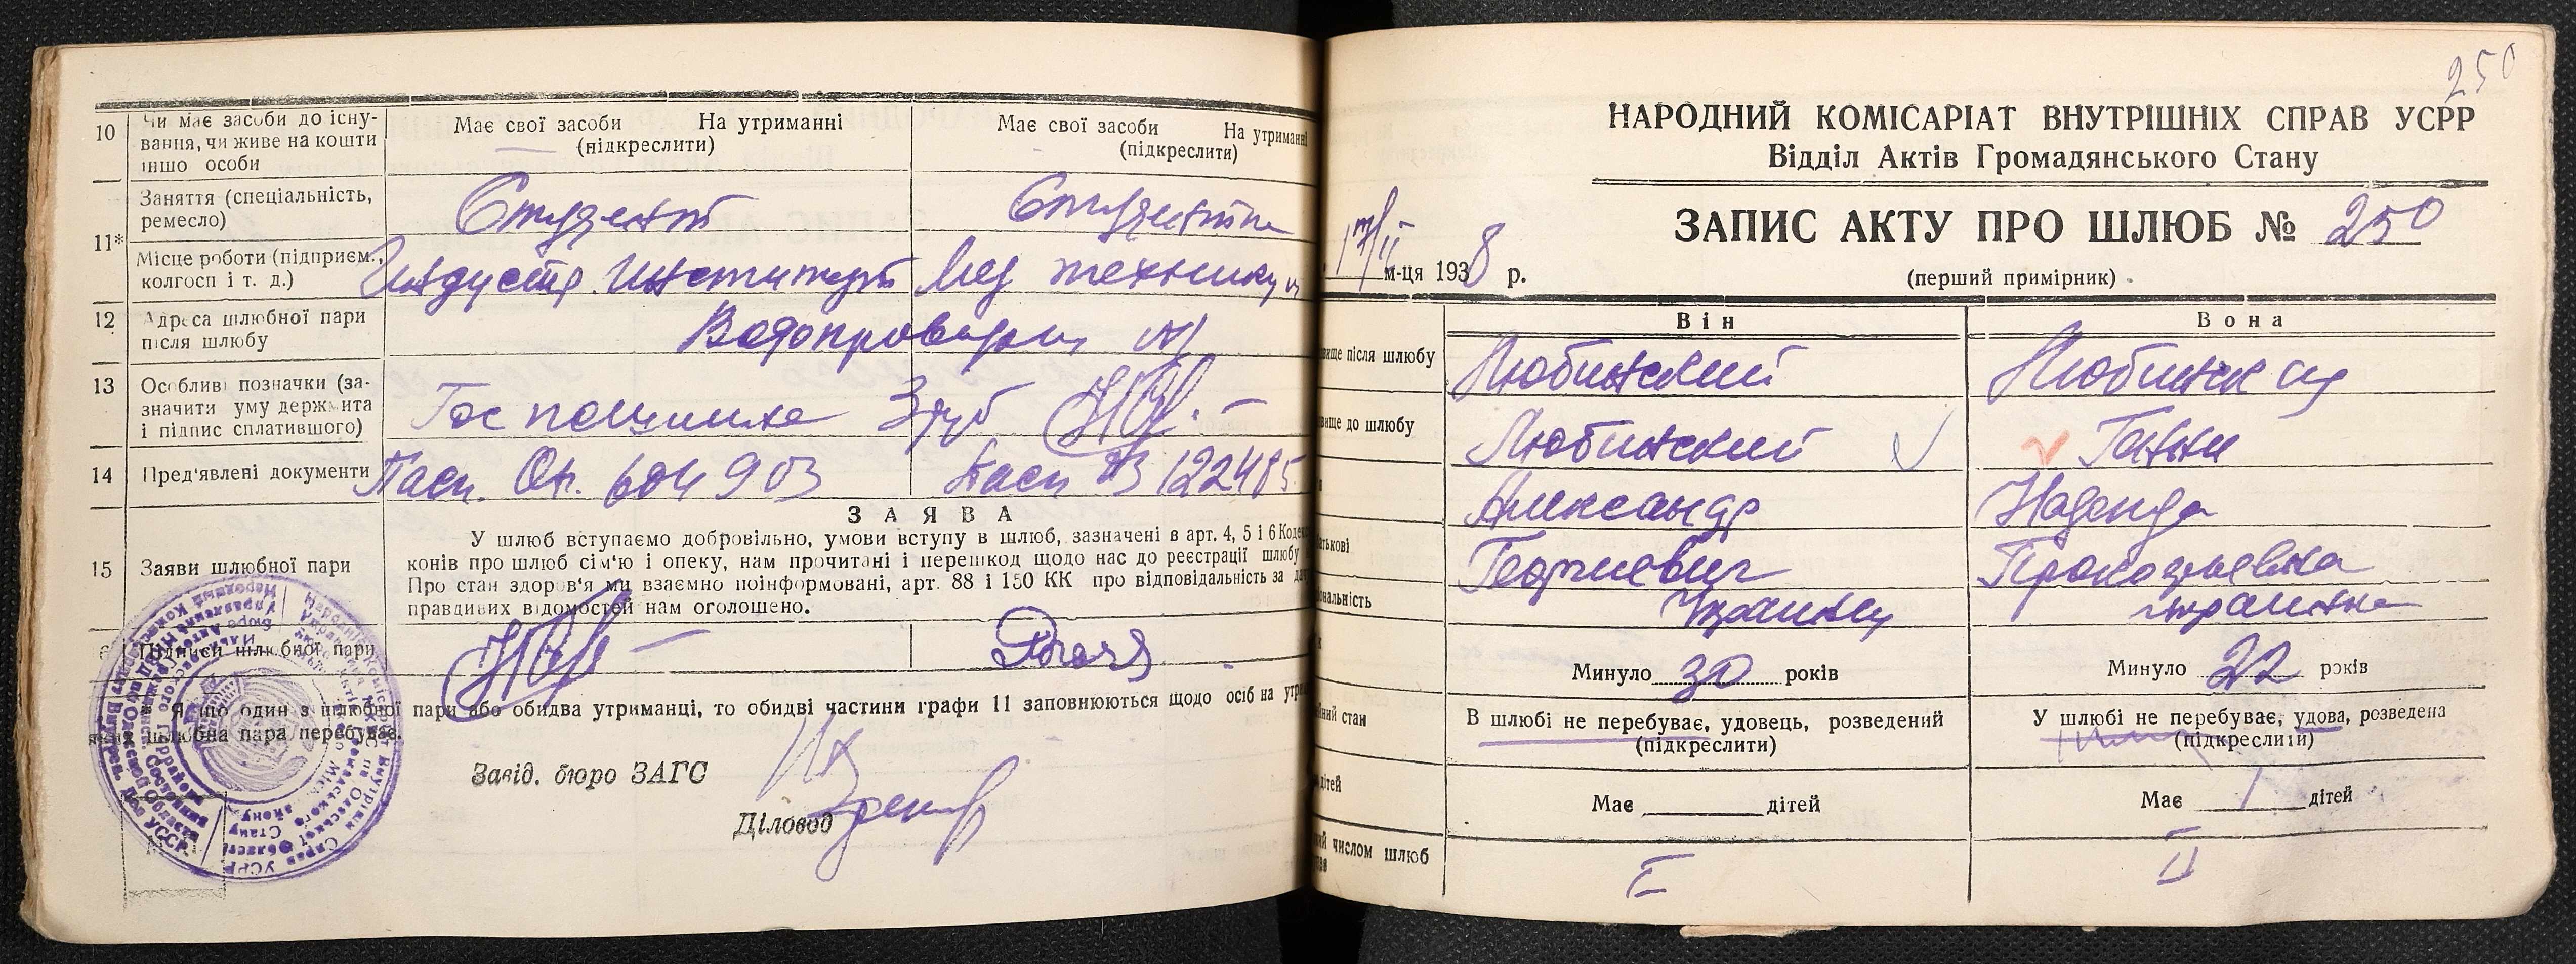 10 Чи має засоби до існу-
вання, чи живе на кошти
іншо особи
Має свої засоби На утриманні
(підкреслити)
Має свої засоби На утриманні
(підкреслити)
11*
Заняття (спеціальність,
ремесло)
Студент
Студентка
Місце роботи (підприєм.,
колгосп і т. д.)
Индустр. Институт
Мед техникум
12 Адреса шлюбної пари
після шлюбу
13 Особливі позначки (за-
значити уму держмита
і підпис сплатившого)
Гос пошлина 3 руб
14 Пред'явлені документи
Пасп. 604903
Пасп 122485
ЗАЯВА
15 Заяви шлюбної пари
У шлюб вступаємо добровільно, умови вступу в шлюб, зазначені в арт. 4, 5 і 6 Кодекс
конів про шлюб сім'ю і опеку, нам прочитані і перешкод щодо нас до реєстрації шлюбу
Про стан здоров'я ми взаємно поінформовані, арт. 88 і 150 КК про відповідальність за
правдивих відомостей нам оголошено.
6 Підписи шлюбної пари
Якщо один з шлюбної пари або обидва утриманці, то обидві частини графи 11 заповнюються щодо осіб на
шлюбна пара перебуває.
Завід. бюро ЗАГС
Діловод
250
НАРОДНИЙ КОМІСАРІАТ ВНУТРІШНІХ СПРАВ УСРР
Відділ Актів Громадянського Стану
ЗАПИС АКТУ ПРО ШЛЮБ № 250
м-ця 1938 р.
(перший примірник)
Він Вона
вище після шлюбу
Любинский
вище до шлюбу
Любинский
Александр
Надежда
атькові
Георгиевич
Прокофьевна
ональність
украинка
Минуло 30 років
Минуло 22 років
йний стан
В шлюбі не перебуває, удовець, розведений
(підкреслити)
У шлюбі не перебуває, удова, розведена
(підкреслити)
дітей
Має дітей
Має дітей
числом шлюб
I
II